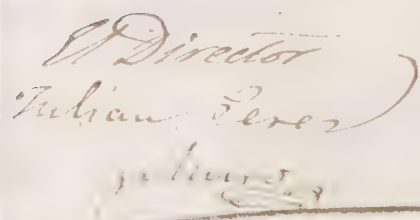 El Director
Julian Perez